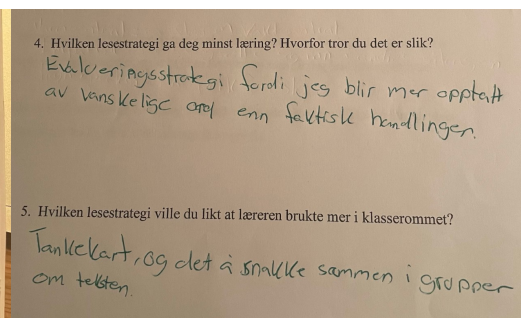 4. Hvilken lesestrategi ga deg minst læring? Hvorfor tror du det er slik?
Evalueringsstrategi fordi jeg blir mer opptatt
av vanskelige ord enn faktisk handlingen.
5. Hvilken lesestrategi ville du likt at læreren brukte mer i klasserommet?
Tankekart, og det å snakke sammen i grupper
om teksten.